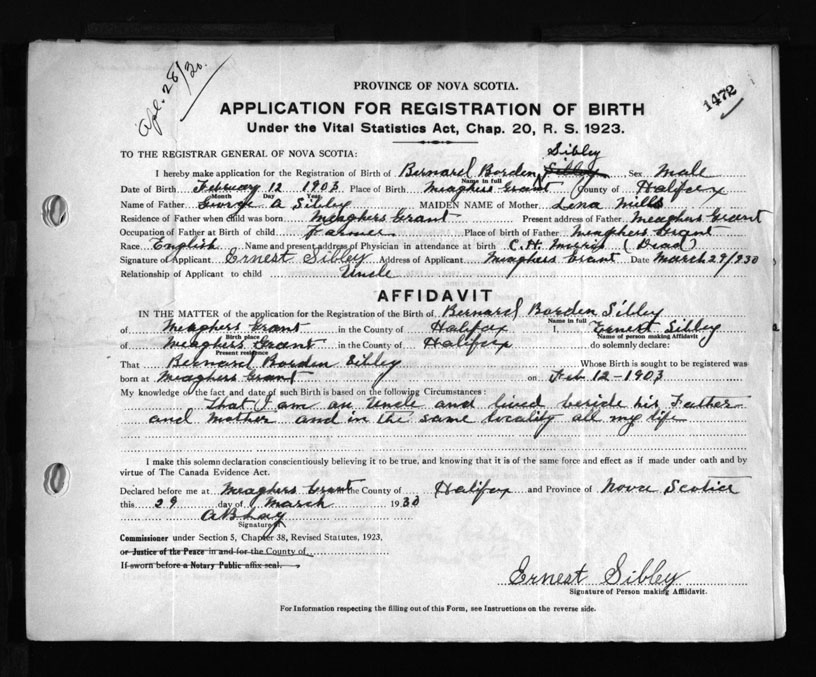 Apl. 28/30.
1472
PROVINCE OF NOVA SCOTIA.
APPLICATION FOR REGISTRATION OF BIRTH
Under the Vital Statistics Act, Chap. 20, R. S. 1923.
TO THE REGISTRAR GENERAL OF NOVA SCOTIA:
Sibley
I hereby make application for the Registration of Birth of Bernard Borden Sibley Sex Male
Name in full
Date of Birth February 12 1903 Place of Birth Meaghers Grant County of Halifax
Month Day Year
Name of Father George A Sibley MAIDEN NAME of Mother Lena Mills
Residence of Father when child was born Meaghers Grant Present address of Father Meaghers Grant
Occupation of Father at Birth of child Farmer Place of birth of Father Meaghers Grant
Race English Name and present address of Physician in attendance at birth C. H. (Dead)
Signature of Applicant Ernest Sibley Address of Applicant Meaghers Grant Date March 29/930
Relationship of Applicant to child Uncle
AFFIDAVIT
IN THE MATTER of the application for the Registration of the Birth of Bernard Borden Sibley
Name in full
of Meaghers Grant in the County of Halifax I, Ernest Sibley
Birth place Name of person making Affidavit
of Meaghers Grant in the County of Halifax do solemnly declare:
Present residence
That Bernard Borden Sibley Whose Birth is sought to be registered was
born at Meaghers Grant on Feb 12 - 1903
My knowledge of the fact and date of such Birth is based on the following Circumstances:
That I am an Uncle and lived beside his Father
and Mother and in the same locality all my life
I make this solemn declaration conscientiously believing it to be true, and knowing that it is of the same force and effect as if made under oath and by
virtue of The Canada Evidence Act.
Declared before me at Meaghers Grant the County of Halifax and Province of Nova Scotia
this 29 day of March 1930
Signature of
Commissioner under Section 5, Chapter 38, Revised Statutes, 1923,
or Justice of the Peace in and for the County of
If sworn before a Notary Public affix seal.
Ernest Sibley
Signature of Person making Affidavit.
For Information respecting the filling out of this Form, see Instructions on the reverse side.